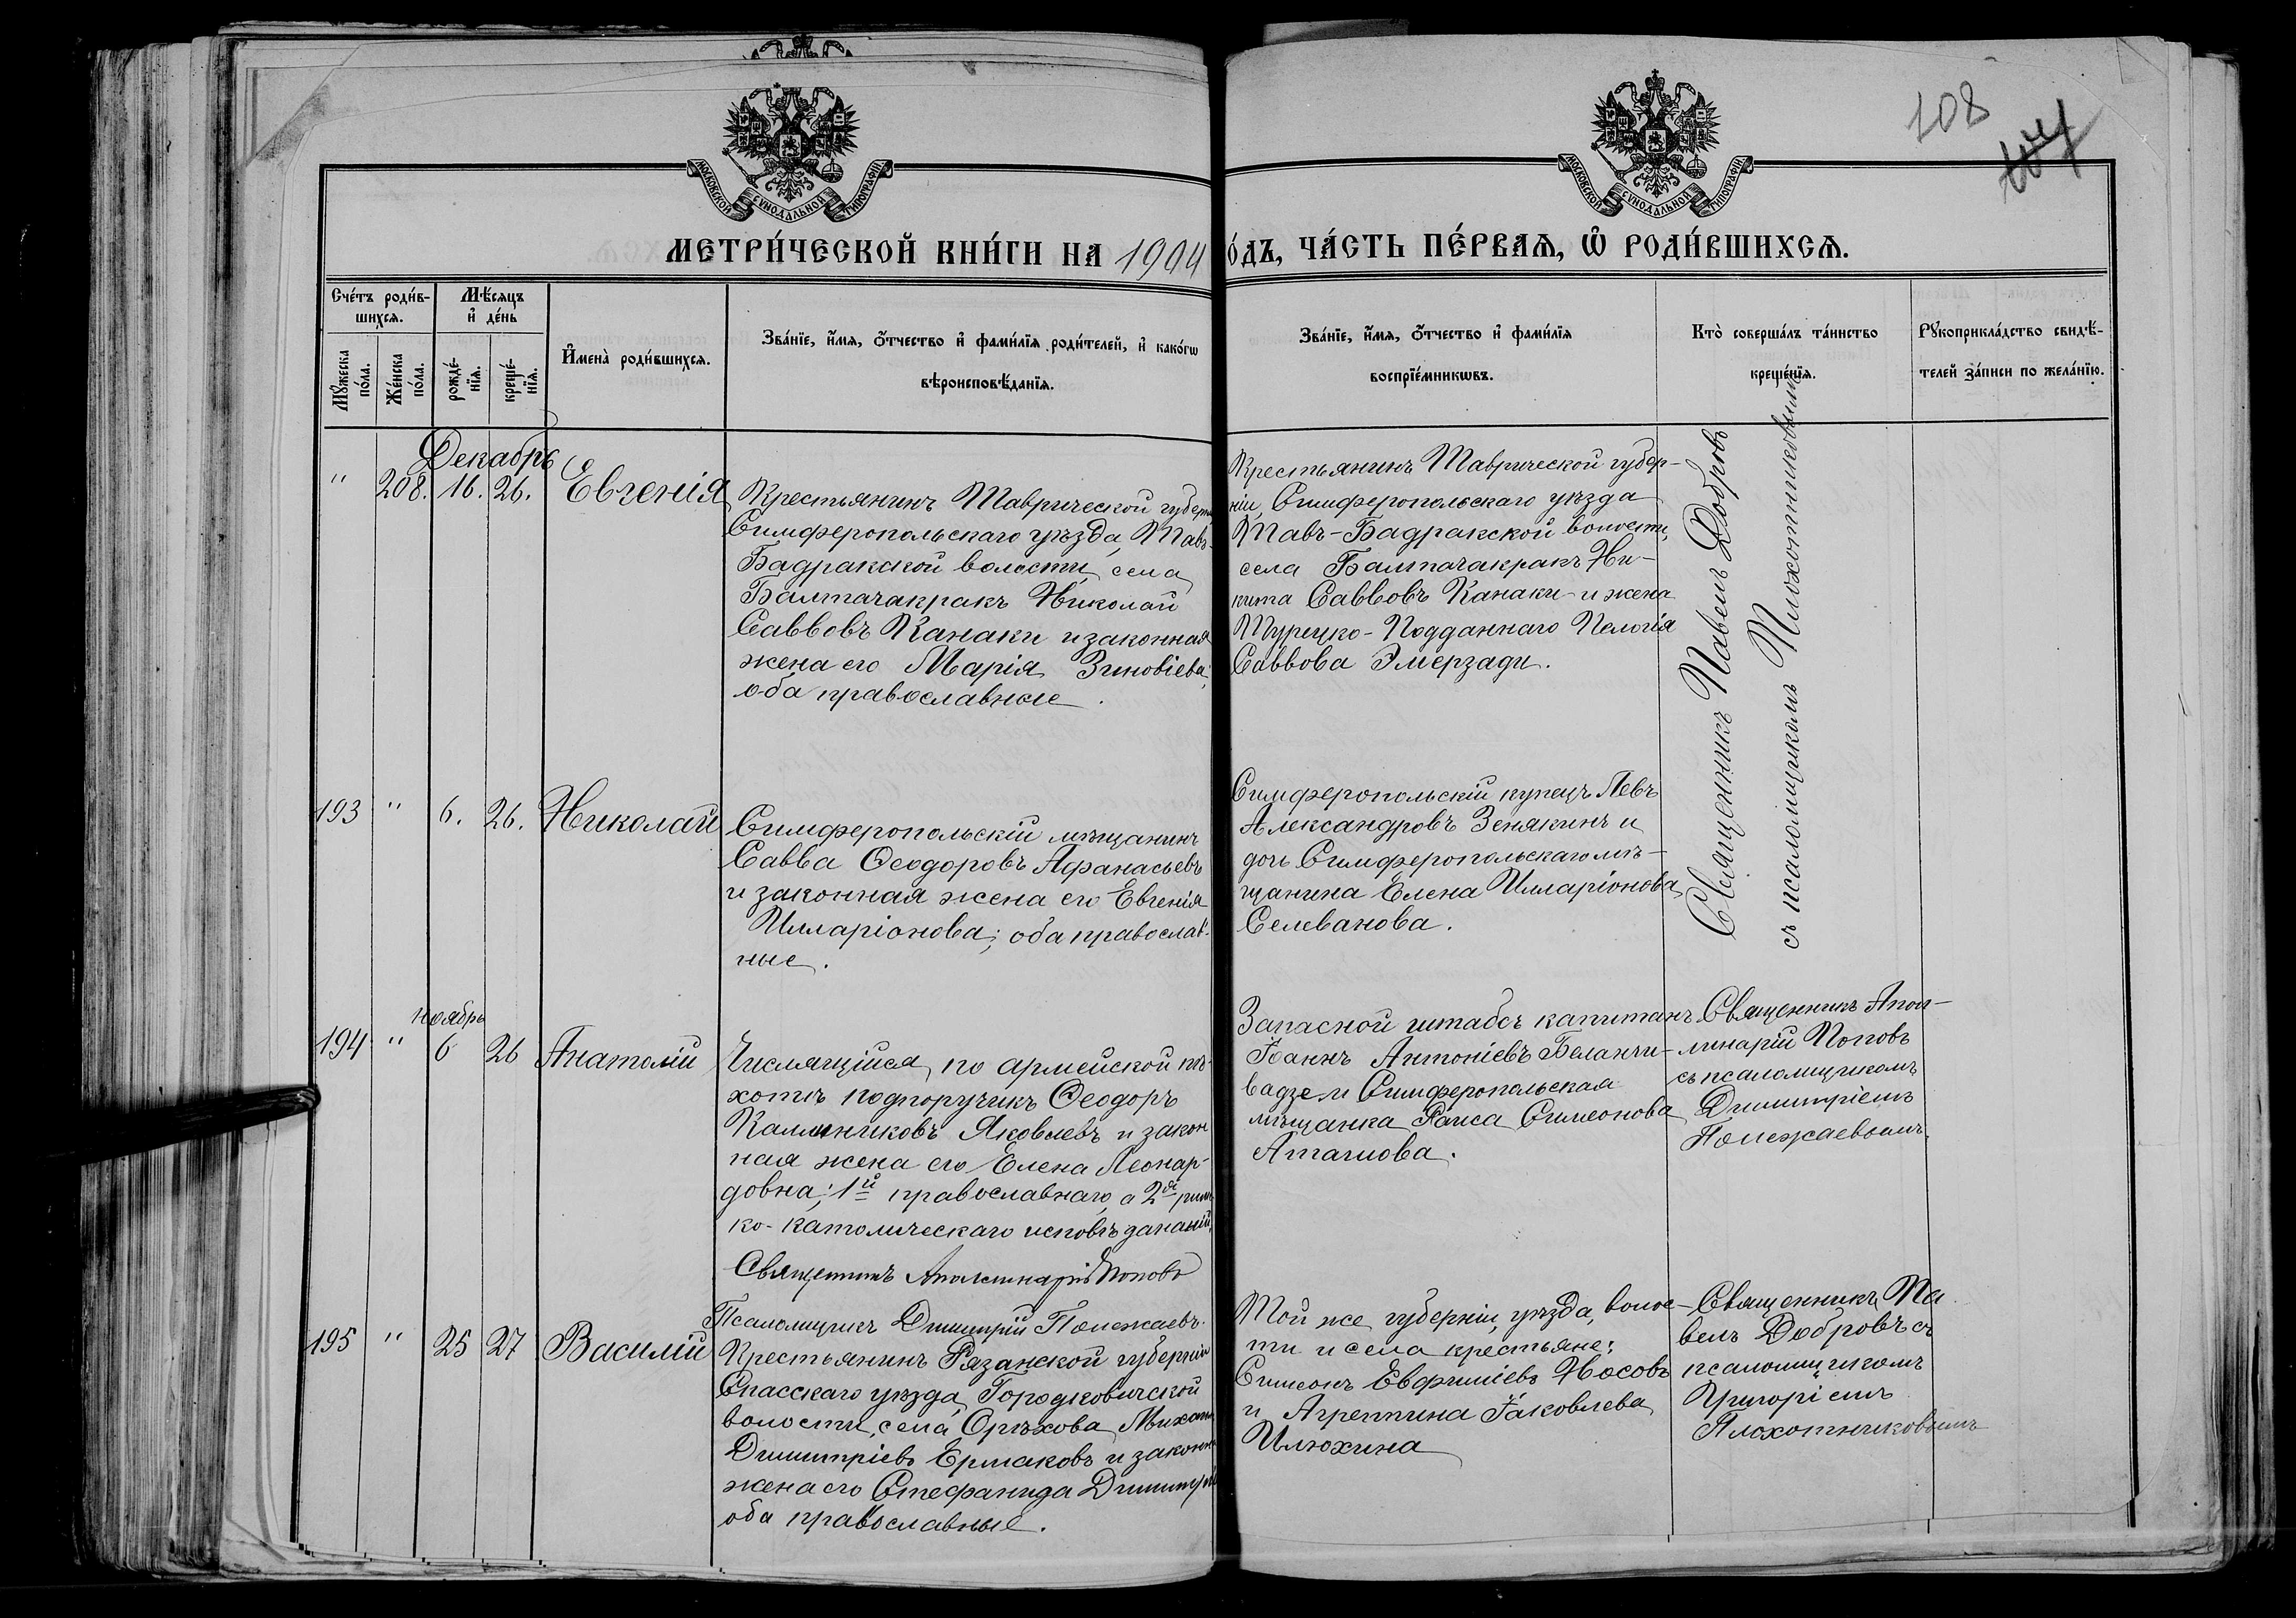 108
МОСКОВСКОЙ СѴНОДАЛЬНОЙ ТИПОГРАФІИ
МОСКОВСКОЙ СѴНОДАЛЬНОЙ ТИПОГРАФІИ
МЕТРИ́ЧЕСКОЙ КНИ́ГИ НА 1904
О́ДЪ, ЧА́СТЬ ПЕ́РВАѦ, Ѡ҆ РОДИ́ВШИХСѦ.
Сче́тъ роди́в-
шихсѧ.
Мꙋ́жеска по́ла.
Же́нска по́ла.
Мѣ́сѧцъ
и҆ де́нь
рожде́-
нїѧ.
креще́-
нїѧ.
И҆мена̀ роди́вшихсѧ.
Зва́нїе, и҆́мѧ, ѻ҆́тчество и҆ фами́лїѧ роди́телей, и҆ како́гѡ
вѣроисповѣ́данїѧ.
Зва́нїе, и҆́мѧ, ѻ҆́тчество и҆ фами́лїѧ
воспрїе́мникѡвъ.
Кто̀ соверша́лъ та́инство
креще́нїѧ.
Рꙋкоприкла́дство свидѣ́-
телей за́писи по жела́нїю.
Декабрь
" 208. 16. 26. Евгенія
Крестьянинъ Таврической губерн
Симферопольскаго уѣзда, Тавъ-
Бадракской волости, села
Балтачакракъ Николай
Саввовъ Канаки и законная
жена его Марія Зиновіева;
оба православные.
Крестьянинъ Таврической губер-
ніи, Симферопольскаго уѣзда
Тавъ-Бадракской волости,
села Балтачакракъ Ни-
кита Саввовъ Канаки и жена
Турецко-Подданнаго Пелагія
Саввова Эмерзади.
Священникъ Павелъ Добровъ
съ псаломщикомъ Плохотниковымъ
193 " 6. 26. Николай
Симферопольскій мѣщанинъ
Савва Ѳеодоровъ Афанасьевъ
и законная жена его Евгенія
Илларіонова; оба православ-
ные.
Симферопольскій купецъ Левъ
Александровъ Зенякинъ и
дочь Симферопольскаго мѣ-
щанина Елена Илларіонова
Селеванова.
ноябрь
194 " 6 26 Анатолій
Числящійся по армейской пѣ-
хотѣ подпоручикъ Ѳеодоръ
Каллиниковъ Яковлевъ и закон
ная жена его Елена Леонар-
довна; 1й православнаго, а 2я рим
ко-католическаго исповѣданій.
Священникъ Аполлинарій Поповъ
Псаломщикъ Димитрій Полежаевъ.
Запасной штабсъ капитанъ
Іоаннъ Антоніевъ Беланчи-
вадзе и Симферопольская
мѣщанка Раиса Симеонова
Аташова.
Священникъ Апол-
линарій Поповъ
съ псаломщикомъ
Димитріемъ
Полежаевымъ.
195 " 25 27 Василій
Крестьянинъ Рязанской губерніи
Спасскаго уѣзда, Городковичской
волости, села Орѣхова Михаилъ
Димитріевъ Ермаковъ и законн
жена его Стефанида Димитрі
оба православные.
Той же губерніи, уѣзда, волос-
ти и села крестьяне:
Симеонъ Евфиміевъ Носовъ
и Агреппина Іаковлева
Илюхина
Священникъ Па
велъ Добровъ съ
псаломщикомъ
Григоріемъ
Плохотниковымъ